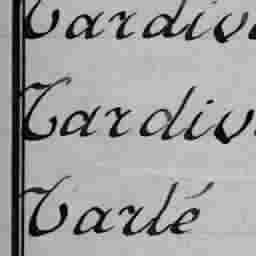 Tardiv
Tardiv
Tarlé